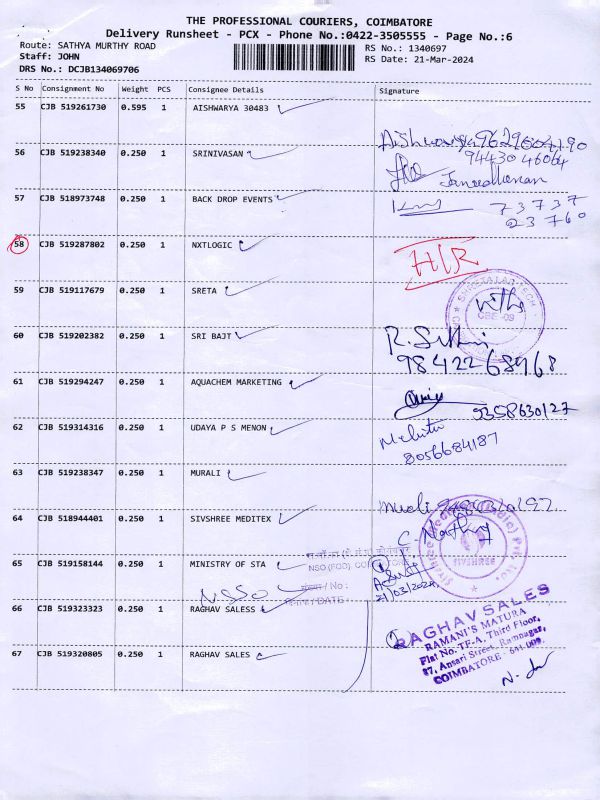 THE PROFESSIONAL COURIERS, COIMBATORE
Delivery Runsheet - PCX - Phone No.:0422-3505555 - Page No.:6
Route: SATHYA MURTHY ROAD
RS No.: 1340697
Staff: JOHN
RS Date: 21-Mar-2024
DRS No.: DCJB134069706
S No Consignment No Weight PCS Consignee Details Signature
55 CJB 519261730 0.595 1 AISHWARYA 30483
Aishwarya
94430 46064
56 CJB 519238340 0.250 1 SRINIVASAN
Janardhanan
57 CJB 518973748 0.250 1 BACK DROP EVENTS
73737
23760
58 CJB 519287802 0.250 1 NXTLOGIC
59 CJB 519117679 0.250 1 SRETA
CBE -09
60 CJB 519202382 0.250 1 SRI BAJT
98422 68968
61 CJB 519294247 0.250 1 AQUACHEM MARKETING
9358630127
62 CJB 519314316 0.250 1 UDAYA P S MENON
8056684187
63 CJB 519238347 0.250 1 MURALI
Murali
64 CJB 518944401 0.250 1 SIVSHREE MEDITEX
SIVSHREE
65 CJB 519158144 0.250 1 MINISTRY OF STA
NSO (FOD),
NSSO
21/03/2024
66 CJB 519323323 0.250 1 RAGHAV SALESS
RAGHAV SALES
RAMANI'S MATURA
Flat No. TF-A, Third Floor,
87, Ansari Street, Ramnagar,
COIMBATORE - 641 009.
67 CJB 519320805 0.250 1 RAGHAV SALES